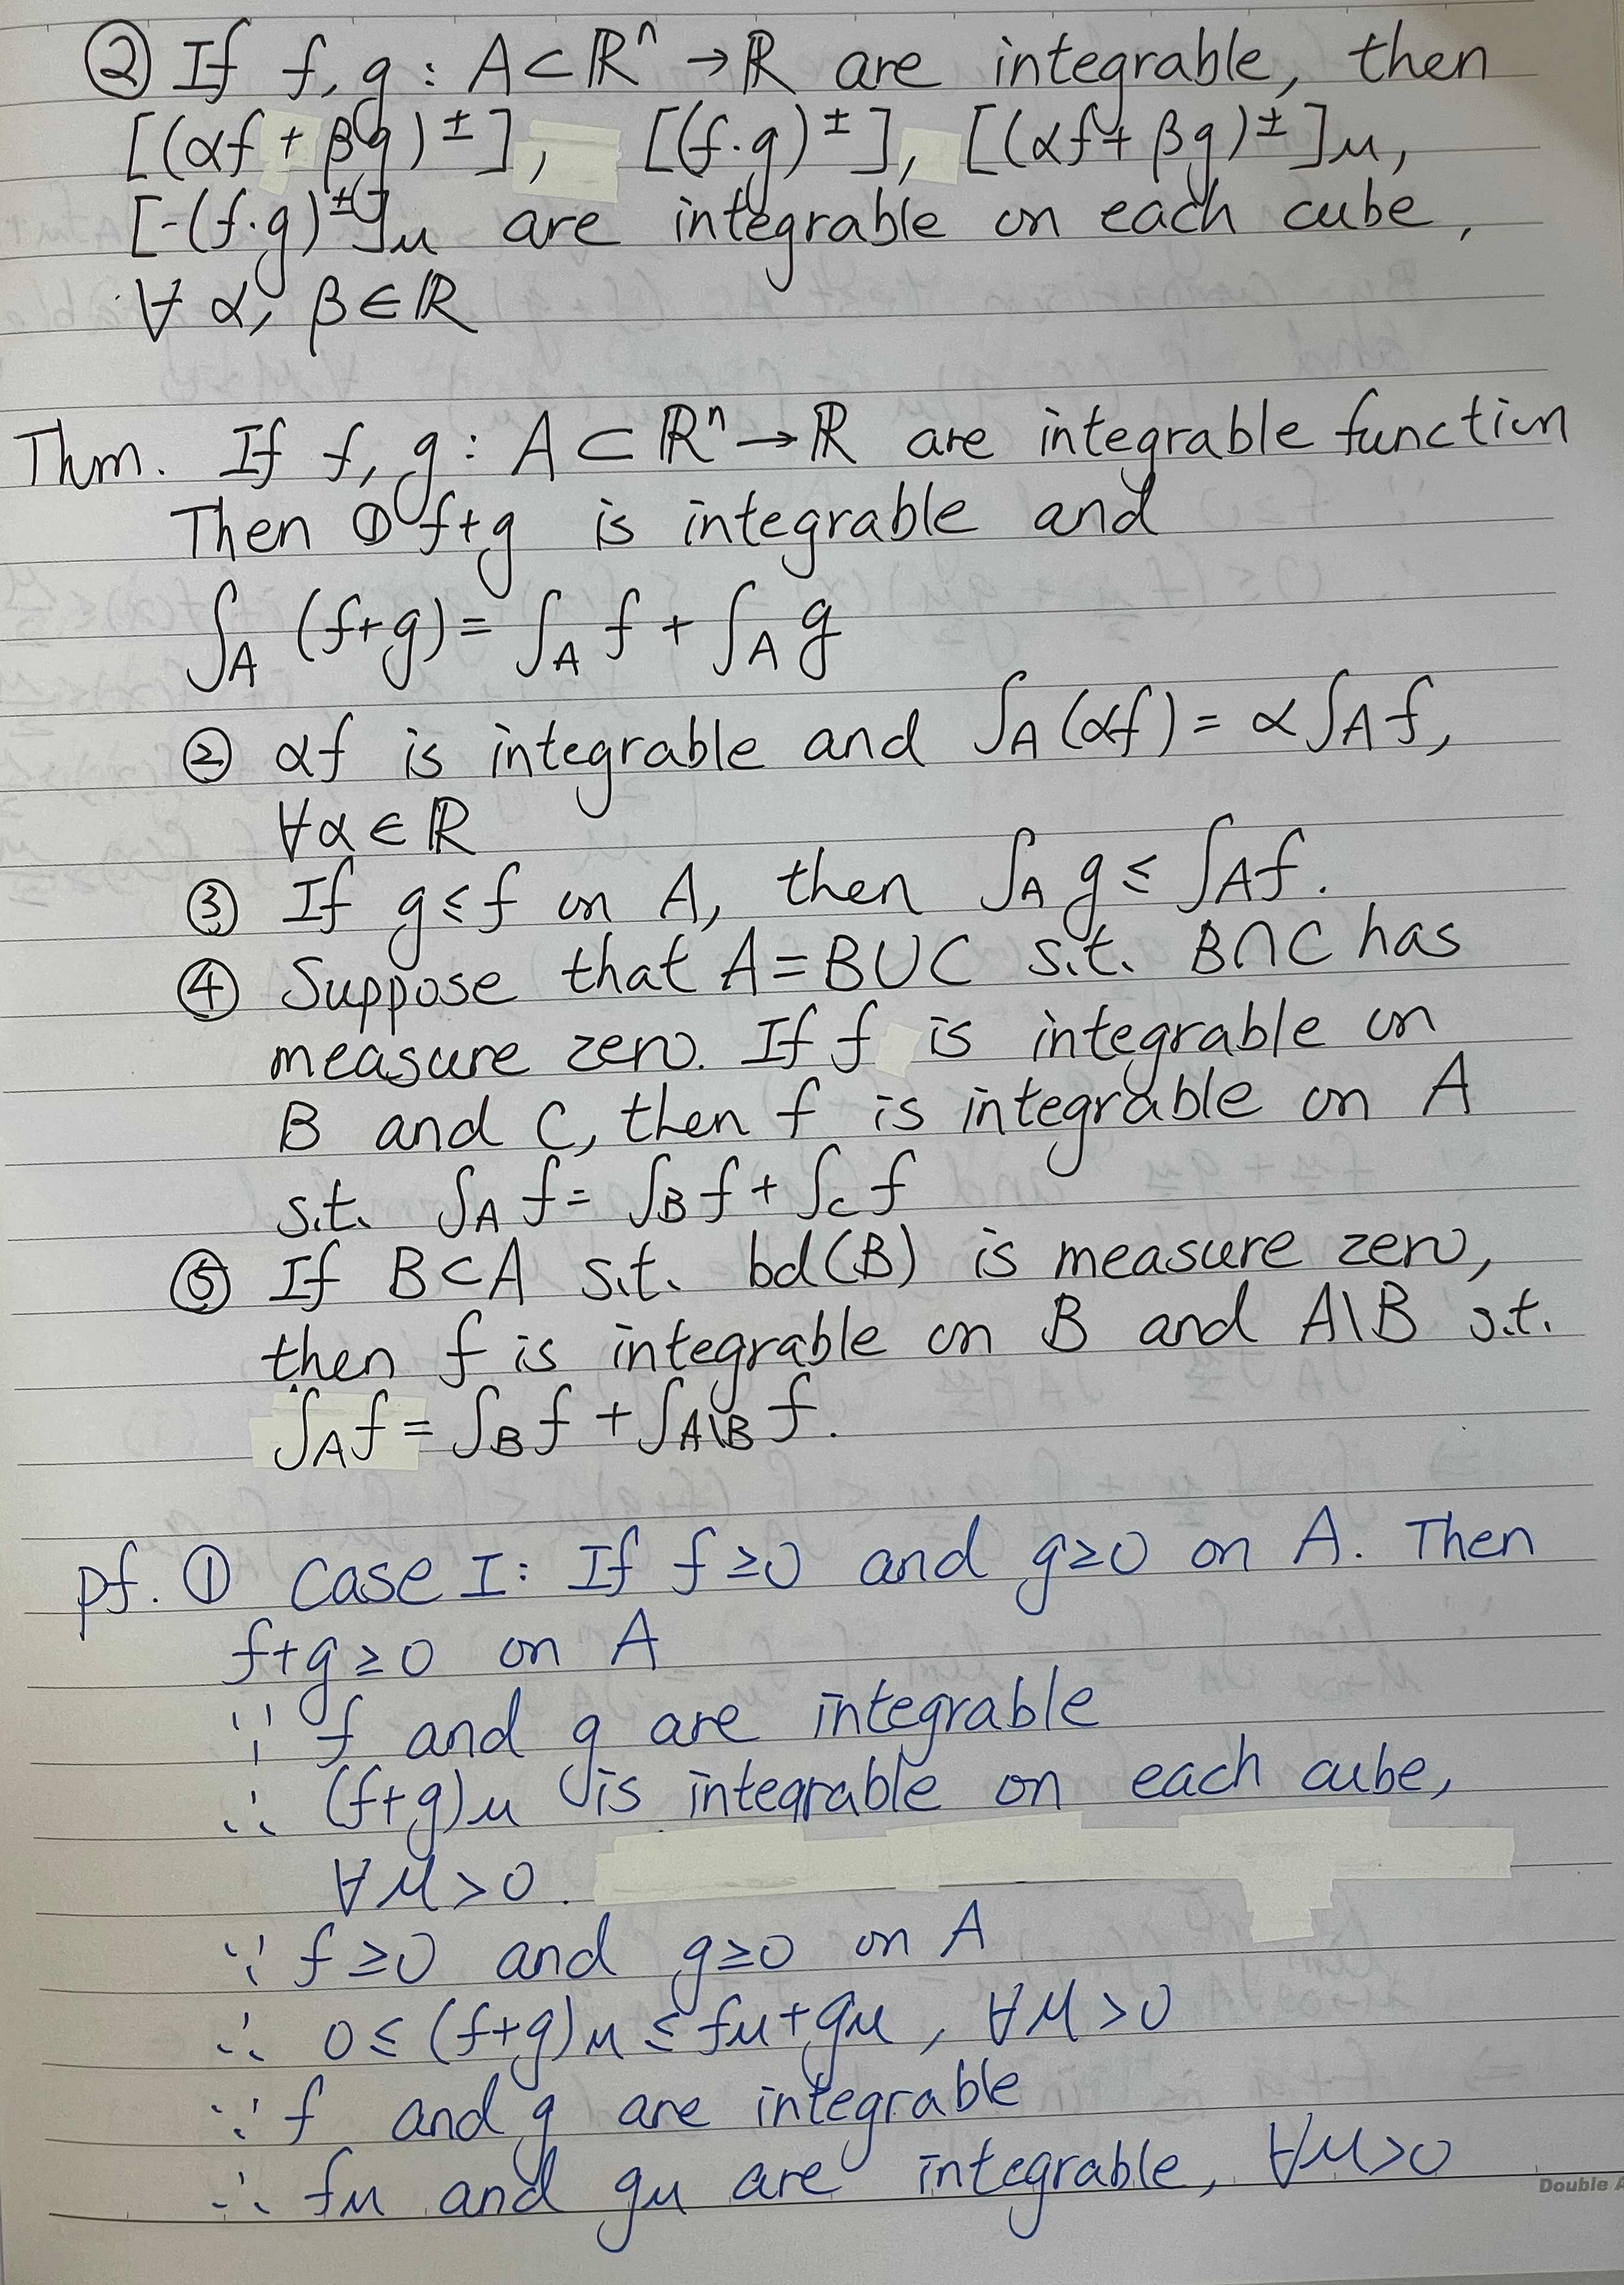 ② If f, g : A⊂ℝⁿ→ℝ are integrable, then
[(αf + βg)±], [(f·g)±], [(αf+βg)±]M,
[-(f·g)±]M are integrable on each cube,
∀ α, β∈ℝ
Thm. If f, g : A⊂ℝⁿ→ℝ are integrable function
Then ① f+g is integrable and
∫A (f+g) = ∫A f + ∫A g
② αf is integrable and ∫A (αf) = α∫A f,
∀α∈ℝ
③ If g≤f on A, then ∫A g ≤ ∫A f.
④ Suppose that A=B∪C s.t. B∩C has
measure zero. If f is integrable on
B and C, then f is integrable on A
s.t. ∫A f = ∫B f + ∫C f
⑤ If B⊂A s.t. bd(B) is measure zero,
then f is integrable on B and A\B s.t.
∫A f = ∫B f + ∫A\B f.
pf. ① Case I: If f≥0 and g≥0 on A. Then
f+g≥0 on A
∵ f and g are integrable
∴ (f+g)M is integrable on each cube,
∀M>0.
∵ f≥0 and g≥0 on A
∴ 0≤(f+g)M≤fM+gM, ∀M>0
∵ f and g are integrable
∴ fM and gM are integrable, ∀M>0
Double A